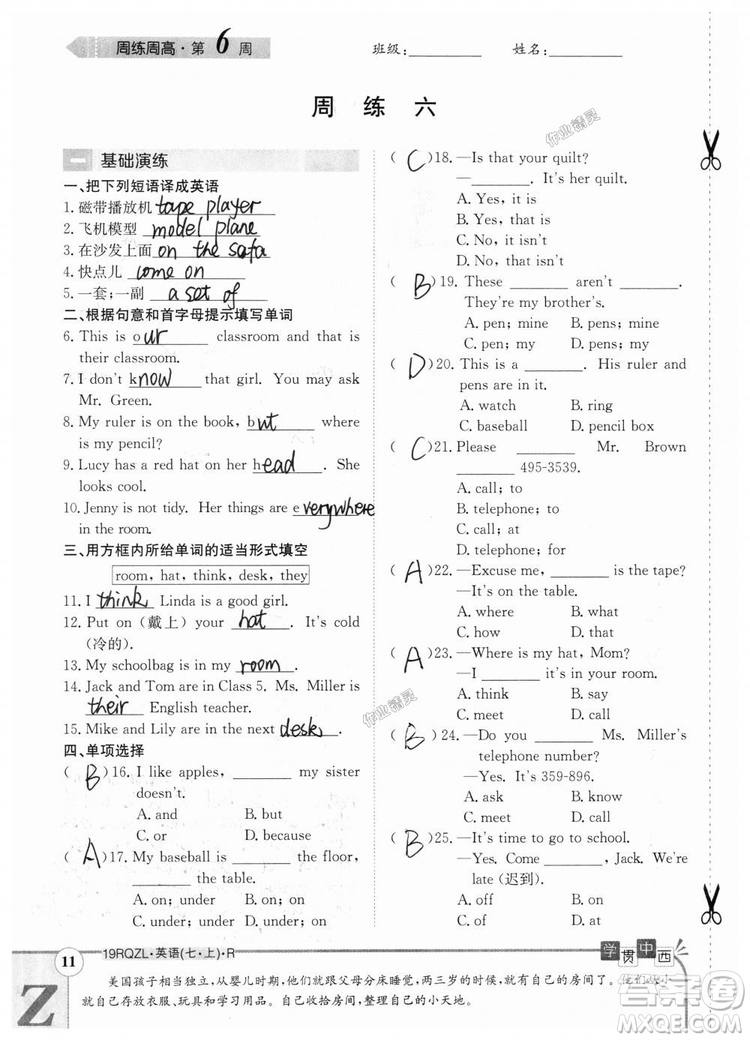 周练周高·第6周
班级:________ 姓名:________
周 练 六
一 基础演练
一、把下列短语译成英语
1. 磁带播放机 tape player
2. 飞机模型 model plane
3. 在沙发上面 on the sofa
4. 快点儿 come on
5. 一套;一副 a set of
二、根据句意和首字母提示填写单词
6. This is our classroom and that is
their classroom.
7. I don't know that girl. You may ask
Mr. Green.
8. My ruler is on the book, but where
is my pencil?
9. Lucy has a red hat on her head. She
looks cool.
10. Jenny is not tidy. Her things are everywhere
in the room.
三、用方框内所给单词的适当形式填空
room, hat, think, desk, they
11. I think Linda is a good girl.
12. Put on (戴上) your hat. It's cold
(冷的).
13. My schoolbag is in my room.
14. Jack and Tom are in Class 5. Ms. Miller is
their English teacher.
15. Mike and Lily are in the next desk.
四、单项选择
( B )16. I like apples, ________ my sister
doesn't.
A. and B. but
C. or D. because
( A )17. My baseball is ________ the floor,
________ the table.
A. on; under B. on; on
C. under; on D. under; under
( C )18. —Is that your quilt?
—________. It's her quilt.
A. Yes, it is
B. Yes, that is
C. No, it isn't
D. No, that isn't
( B )19. These ________ aren't ________.
They're my brother's.
A. pen; mine B. pens; mine
C. pen; my D. pens; my
( D )20. This is a ________. His ruler and
pens are in it.
A. watch B. ring
C. baseball D. pencil box
( C )21. Please ________ Mr. Brown
________ 495-3539.
A. call; to
B. telephone; to
C. call; at
D. telephone; for
( A )22. —Excuse me, ________ is the tape?
—It's on the table.
A. where B. what
C. how D. that
( A )23. —Where is my hat, Mom?
—I ________ it's in your room.
A. think B. say
C. meet D. call
( B )24. —Do you ________ Ms. Miller's
telephone number?
—Yes. It's 359-896.
A. think B. know
C. meet D. call
( B )25. —It's time to go to school.
—Yes. Come ________, Jack. We're
late (迟到).
A. off B. on
C. of D. at
11 19RQZL·英语(七·上)·R
学贯中西
美国孩子相当独立,从婴儿时期,他们就跟父母分床睡觉,两三岁的时候,就有自己的房间了。他们从小
就自己存放衣服、玩具和学习用品。自己收拾房间,整理自己的小天地。
Z
作业精灵
作业精灵
答案圈
MXQE.COM